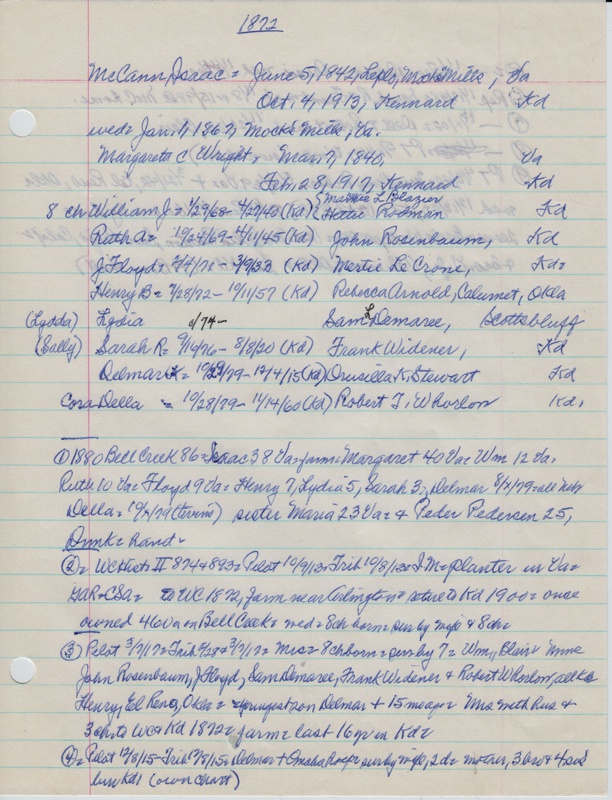 1872
McCann, Isaac = June 5, 1842, Leplo, Mocks Mills, Va
Oct, 4, 1913, Kennard Kd
wed = Jan, 1, 1867, Mocks Mills, Va.
Margareta C Wright, Mar, 7, 1840, Va
Feb, 28, 1917, Kennard Kd
Mattie L Blazier
8 ch William J = 1/29/68 - 4/27/40 (Kd) Hettie Rodman Kd
Ruth A = 10/24/69 - 4/11/45 (Kd) John Rosenbaum, Kd
J Floyd = 3/4/71 - 3/9/33 (Kd) Mertie Le Crone, Kd =
Henry B = 7/28/72 - 10/11/57 (Kd) Rebecca Arnold, Calumet, Okla
(Lydda) Lydia /74 - Sam L Demaree, Scottsbluff
(Sally) Sarah R = 9/16/76 - 8/8/20 (Kd) Frank Widener, Kd
Delmar = 10/29/79 - 12/4/15 (Kd) Drusilla K Stewart Kd
Cora Della = 10/28/79 - 11/14/60 (Kd) Robert T. Whorlow Kd,
① 1880 Bell Creek 86 = Isaac 38 Va = farm = Margaret 40 Va = Wm 12 Va.
Ruth 10 Va = Floyd 9 Va = Henry 7, Lydia 5, Sarah 3, Delmar 8/ /79 = all Neb
Della = 10/ /79 (twins) sister Maria 23 Va = & Peder Pedersen 25,
Dnmk = hand =
② = WC Hist II 874 & 893 = Pilot 10/9/13 = Trib 10/8/13 = I M = planter in Va =
GAR = CSA = to WC 1872, farm near Arlington = retire to Kd 1900 = once
owned 460 a on Bell Creek = wed = 8 ch born = sur by wife & 8 ch =
③ Pilot 3/7/17 = Trib 2/28 & 3/7/17 = Mrs = 8 ch born = sur by 7 = Wm, Blair =
John Rosenbaum, J Floyd, Sam Demaree, Frank Widener & Robert Whorlow, all Kd
Henry, El Reno, Okla = youngest son Delmar + 15 mo ago = Mrs with hus &
3 ch to WC & Kd 1872 = farm = last 16 yr in Kd =
④ = Pilot 12/8/15 - Trib 12/8/15 = Delmar + Omaha hosp = sur by wife, 2 d = mother, 3 bro & 4 sis
bur Kd (own chart)